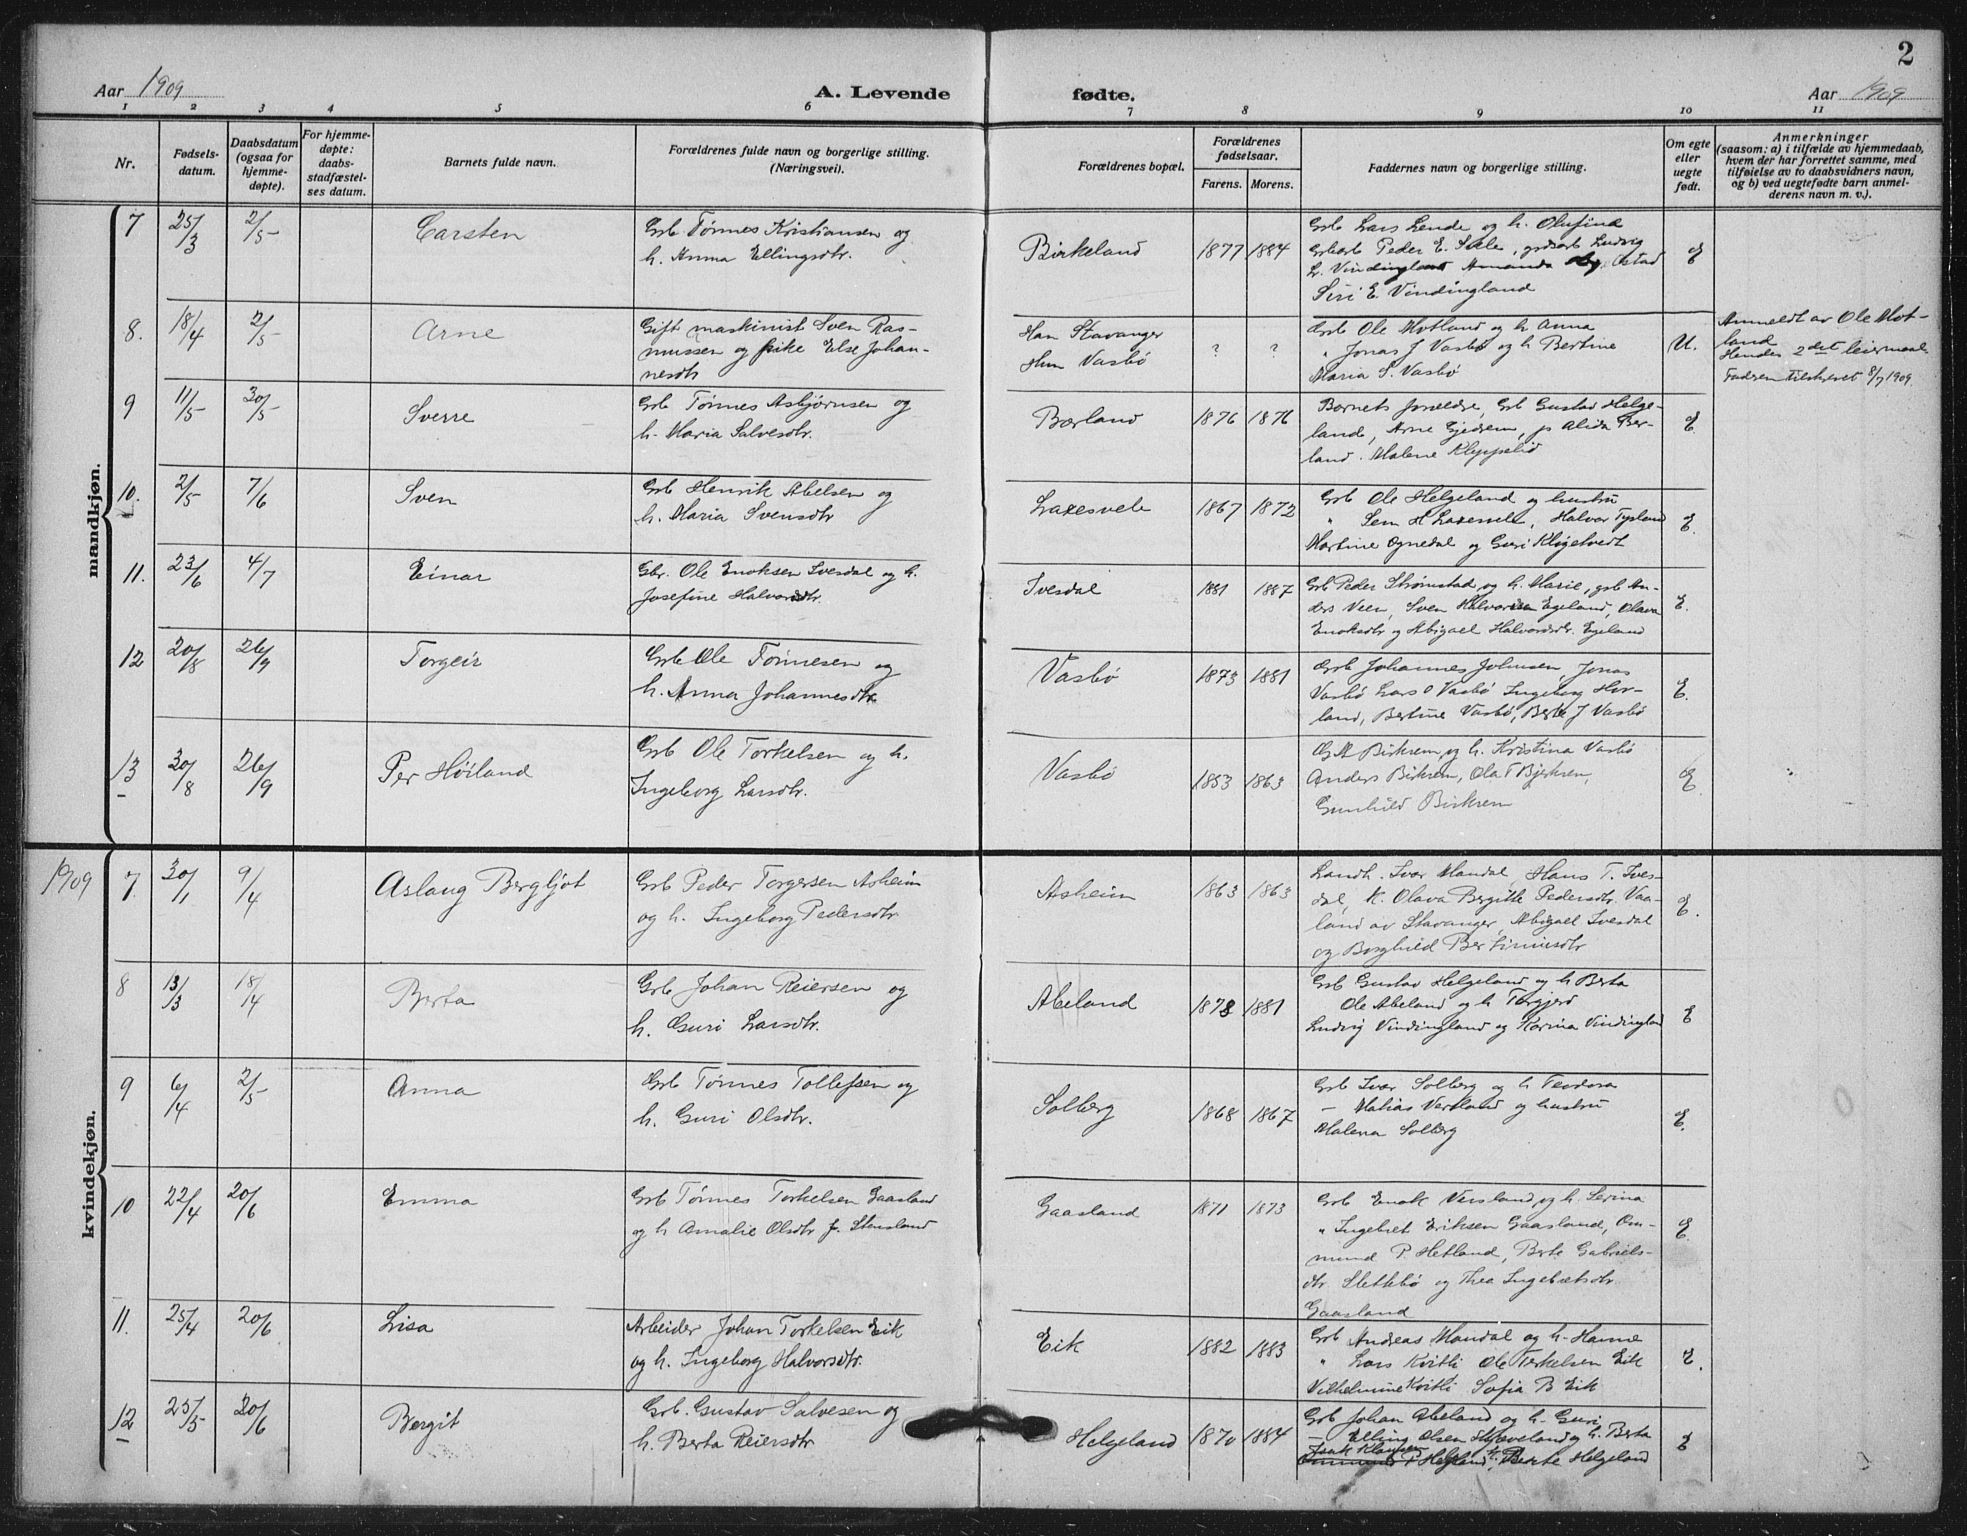 2
Aar 1909
A. Levende
fødte.
Aar 1909
1 2 3 4 5 6 7 8 9 10 11
Nr.
Fødsels-
datum.
Daabsdatum
(ogsaa for
hjemme-
døpte).
For hjemme-
døpte:
daabs-
stadfæstel-
ses datum.
Barnets fulde navn.
Forældrenes fulde navn og borgerlige stilling.
(Næringsvei).
Forældrenes bopæl.
Forældrenes
fødselsaar.
Farens. Morens.
Faddernes navn og borgerlige stilling.
Om egte
eller
uegte
født.
Anmerkninger
(saasom: a) i tilfælde av hjemmedaab,
hvem der har forrettet samme, med
tilføielse av to daabsvidners navn,
og b) ved uegtefødte barn anmel-
derens navn m. v.).
mandkjøn.
7 25/3 2/5 Carsten
Grb Tønnes Kristiansen og
h. Anna Ellingsdtr.
Birkeland 1877 1884
Grb Lars Lende og h. Olufine
Peder E. Sæle, Ludvig
L. Vindingland Amanda
Siri E. Vindingland
E
8. 18/4 2/5 Arne
Gift maskinist Sven Ras-
mussen og pike Else Johan-
nesdtr
Han Stavanger
Hun Vasbø
? ?
Grb Ole Motland og h Anna
" Jonas J Vasbø og h Bertine
Maria S. Vasbø
U.
Anmeldt av Ole Mot-
land
Hendes 2det leiermaal
Fadren tilskrevet 8/7 1909.
9 11/5 30/5 Sverre
Grb Tønnes Asbjørnsen og
h. Maria Salvesdtr.
Bærland 1876 1876
Barnets forældre, Grb Gustav Helge-
land, Arne Gjedrem, p. Alida Bær-
land. Malene Kleppelid
E.
10. 2/5 7/6 Sven
Grb Henrik Abelsen og
h. Maria Svensdtr
Laxesvele 1867 1872
Grb Ole Helgeland og hustru
" Sem H Laxesvele, Halvor Tysland
Martine Ognedal og Guri Kløgetvedt
E.
11. 23/6 4/7 Einar
Gbr. Ole Enoksen Ivesdal og h.
Josefine Halvorsdtr.
Ivesdal 1881 1887
Grb Peder Strømstad og h. Marie, grb An-
ders Veen, Sven Halvorsen Egeland, Olava
Enoksdtr og Abigael Halvorsdtr. Egeland
E.
12 20/8 26/9 Torgeir
Grb Ole Tønnesen og
h. Anna Johannesdtr
Vasbø 1873 1881
Grb Johannes Johnsen, Jonas
Vasbø Lars O Vasbø Ingeborg Hov-
land, Bertine Vasbø, Berte J Vasbø
E.
13 30/8 26/9 Per Høiland
Grb Ole Torkelsen og h.
Ingeborg Larsdtr.
Vasbø 1853 1863
Birkrem, og h. Kristina Vasbø
Anders Birkrem, Ola T Bjerkrem,
Gunhild Birkrem
E.
1909
kvindekjøn.
7. 30/1 9/4 Aslaug Bergljot
Grb Peder Torgersen Asheim
og h. Ingeborg Pedersdtr
Asheim 1863 1863
Landh. Ivar Mandal, Hans T. Ives-
dal, K. Olava Bergitte Pedersdtr. Vaa-
land av Stavanger, Abigael Ivesdal
og Borghild Bertinusdtr
E.
8 13/3 18/4 Berta
Grb Johan Reiersen og
h. Guri Larsdtr.
Abeland 1878 1881
Grb Gustav Helgeland og h Berta
Ole Abeland og h Torgjerd
Ludvig Vindingland og Karina Vindingland
E
9 6/4 2/5 Anna
Grb Tønnes Tollefsen og
h. Guri Olsdtr.
Solberg 1868 1867
Grb Ivar Solberg og h Teodora
— Matias Versland og hustru
Malena Solberg
E.
10 22/4 20/6 Emma
Grb Tønnes Torkelsen Gaasland
og h Amalie Olsdtr f. Stensland
Gaasland 1871 1873
Grb Enok Versland og h. Serina
" Ingebret Eriksen Gaasland, Om-
mund P. Hetland, Berte Gabriels-
dtr. Slettebø og Thea Ingebretsdtr.
Gaasland
E.
11. 25/4 20/6 Lisa
Arbeider Johan Torkelsen Eik
og h. Ingeborg Halvorsdtr.
Eik 1882 1883
Grb Andreas Mandal og h. Hanne
" Lars Kvitli Ole Torkelsen Eik
Vilhelmine Kvitli Sofia B Eik
E.
12 25/5 20/6 Bergit
Grb. Gustav Salvesen og
h. Berta Reiersdtr
Helgeland 1870 1884
Grb Johan Abeland og h. Guri
— Elling Olsen Skjæveland og h. Berta
Berte Helgeland
E